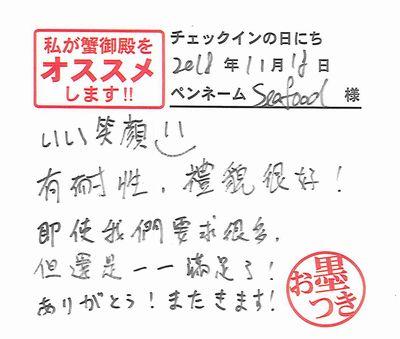 私が蟹御殿を
オススメ
します!!
チェックインの日にち
2018年11月18日
ペンネーム Seafood 様
いい笑顔
有耐性，禮貌很好！
即使我們要求很多，
但還是一一滿足了！
ありがとう！またきます！
お墨つき